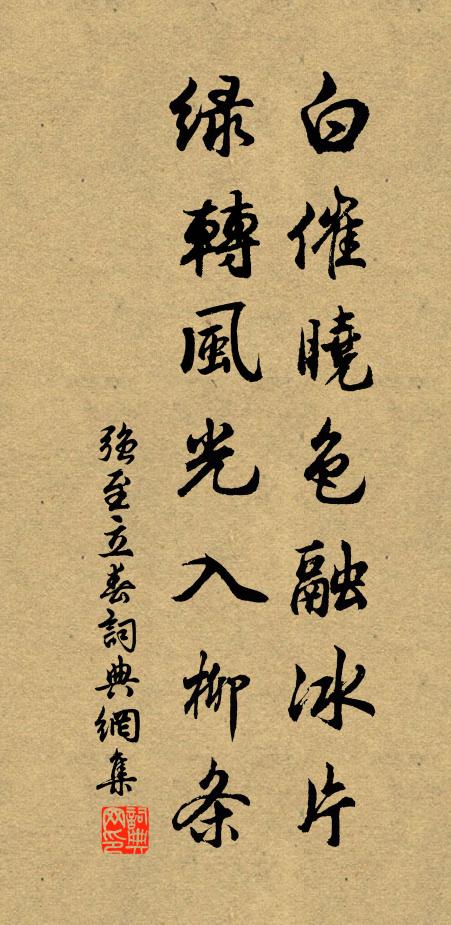 白催曉色融冰片
緑轉風光入柳条
强至立春詞典網集
詞典網印